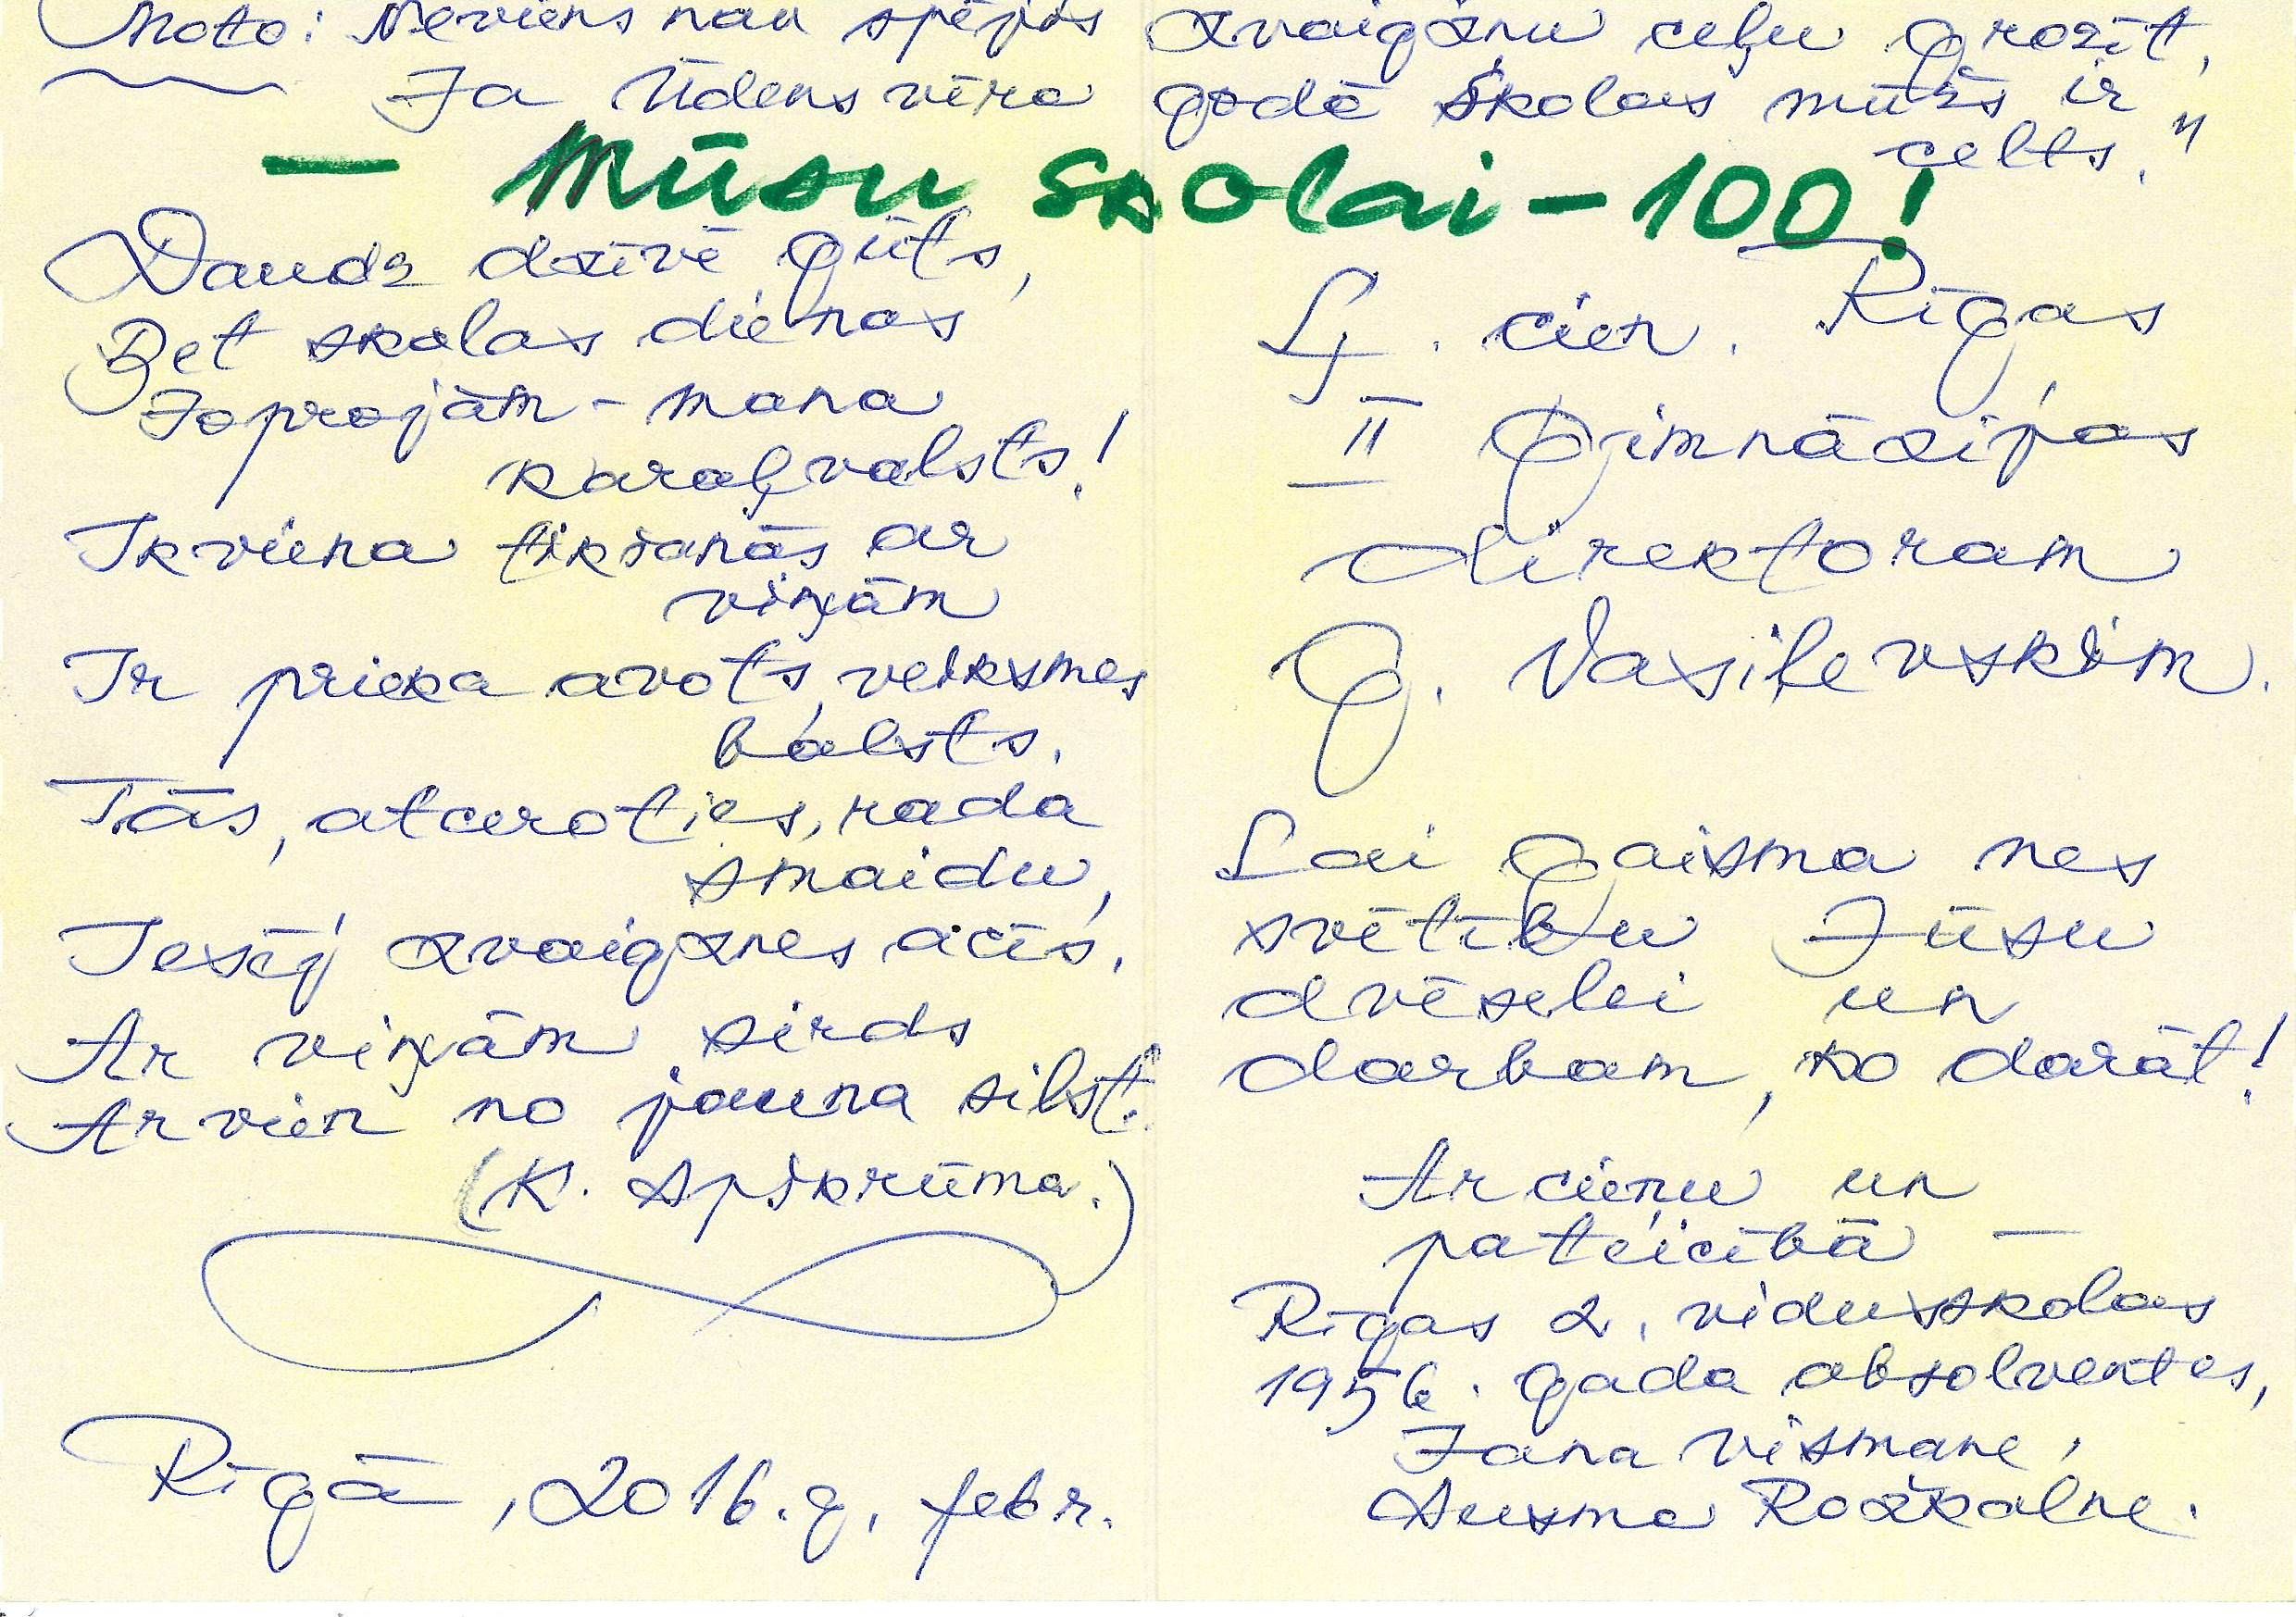 Moto: Neviens nav spējis zvaigžņu ceļu grozīt,
Ja Ūdensvīra godē skolas mūžs ir
celts."
– Mūsu skolai – 100!
Daudz dzīvē gūts,
Bet skolas dienas
Joprojām – mana
karaļvalsts!
Ikviena tikšanās ar
viņām
Ir prieka avots, veiksmes
balsts.
Tās, atceroties, rada
smaidu,
Iesēj zvaigznes acīs,
Ar viņām sirds
Arvien no jauna silst.
(K. Apškrūma.)
Rīgā, 2016. g. febr.
Lj. cien. Rīgas
II Ģimnāzijas
direktoram
G. Vasiļevskim.
Lai gaisma nes
svētību Jūsu
dvēselei un
darbam, ko darāt!
Ar cieņu un
pateicībā –
Rīgas 2. vidusskolas
1956. gada absolventes,
Jana Vismane,
Ausma Rožkalne.